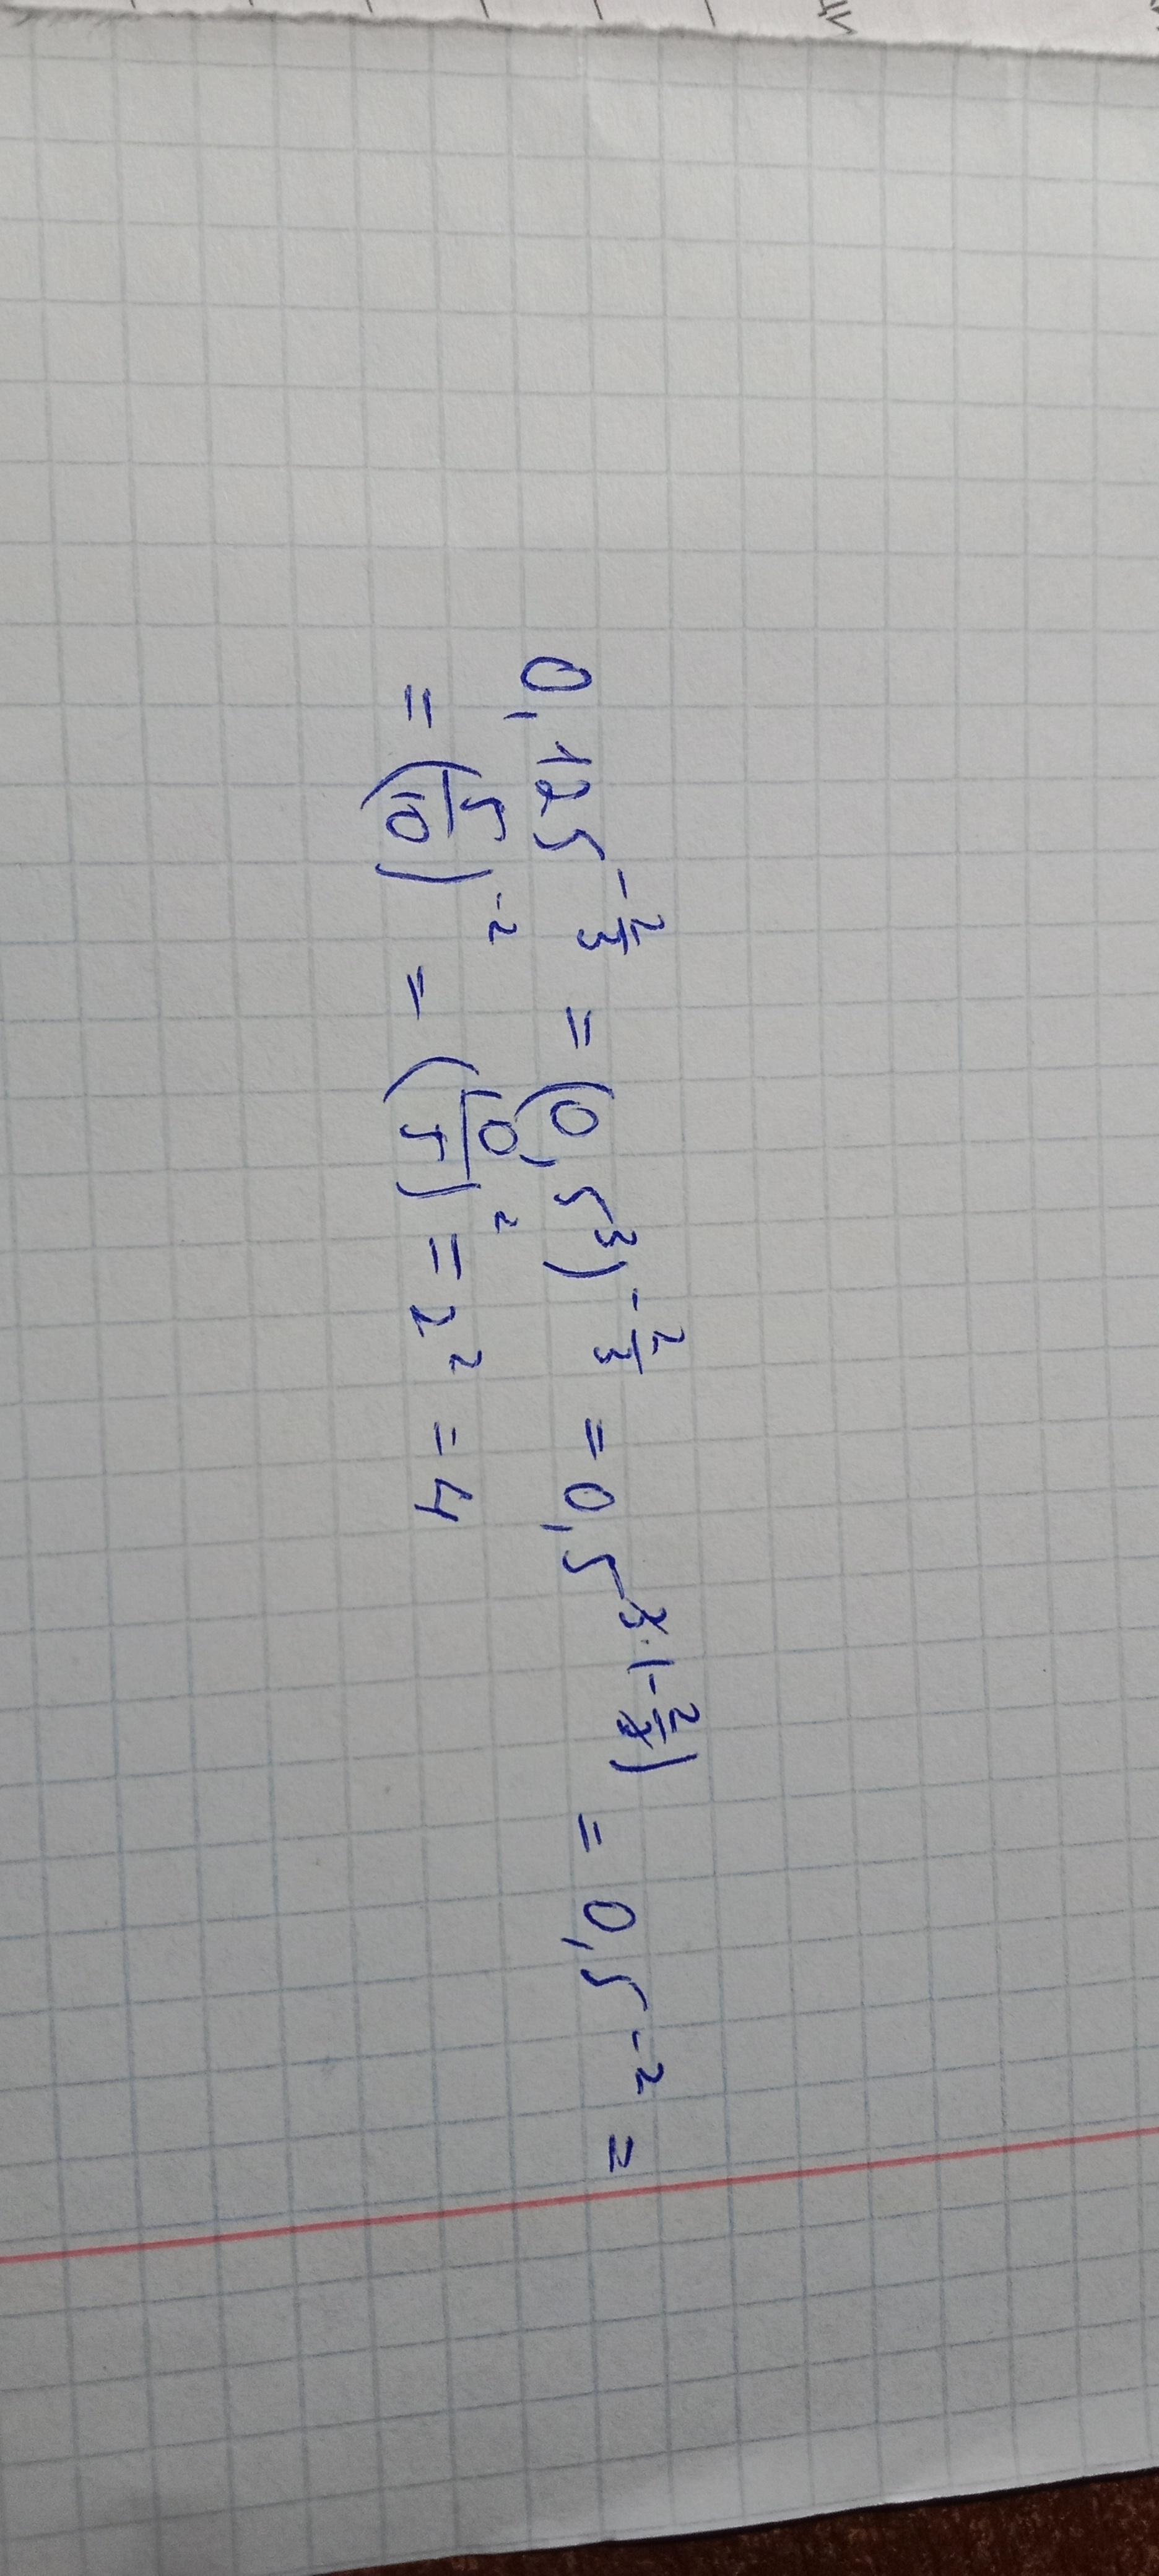 0,125^{-\frac{2}{3}} = (0,5^3)^{-\frac{2}{3}} = 0,5^{3·(-\frac{2}{3})} = 0,5^{-2} =
= (\frac{5}{10})^{-2} = (\frac{10}{5})^2 = 2^2 = 4